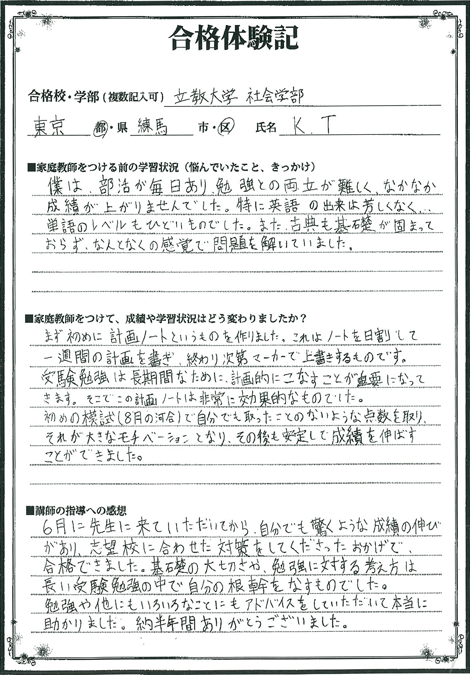 合格体験記
合格校・学部(複数記入可) 立教大学 社会学部
東京 都・県 練馬 市・区 氏名 K.T
■家庭教師をつける前の学習状況(悩んでいたこと、きっかけ)
僕は、部活が毎日あり、勉強との両立が難しく、なかなか
成績が上がりませんでした。特に英語の出来は芳しくなく、
単語のレベルもひどいものでした。また、古典も基礎が固まって
おらず、なんとなくの感覚で問題を解いていました。
■家庭教師をつけて、成績や学習状況はどう変わりましたか?
まず初めに計画ノートというものを作りました。これはノートを日割りして
一週間の計画を書き、終わり次第マーカーで上書きするものです。
受験勉強は長期間なために、計画的にこなすことが重要になって
きます。そこでこの計画ノートは非常に効果的なものでした。
初めの模試(8月の河合)で自分でも取ったことのないような点数を取り、
それが大きなモチベーションとなり、その後も安定して成績を伸ばす
ことができました。
■講師の指導への感想
6月に先生に来ていただいてから、自分でも驚くような成績の伸び
があり、志望校に合わせた対策をしてくださったおかげで、
合格できました。基礎の大切さや、勉強に対する考え方は
長い受験勉強の中で自分の根幹をなすものでした。
勉強や他にもいろいろなことにもアドバイスをしていただいて本当に
助かりました。約半年間ありがとうございました。